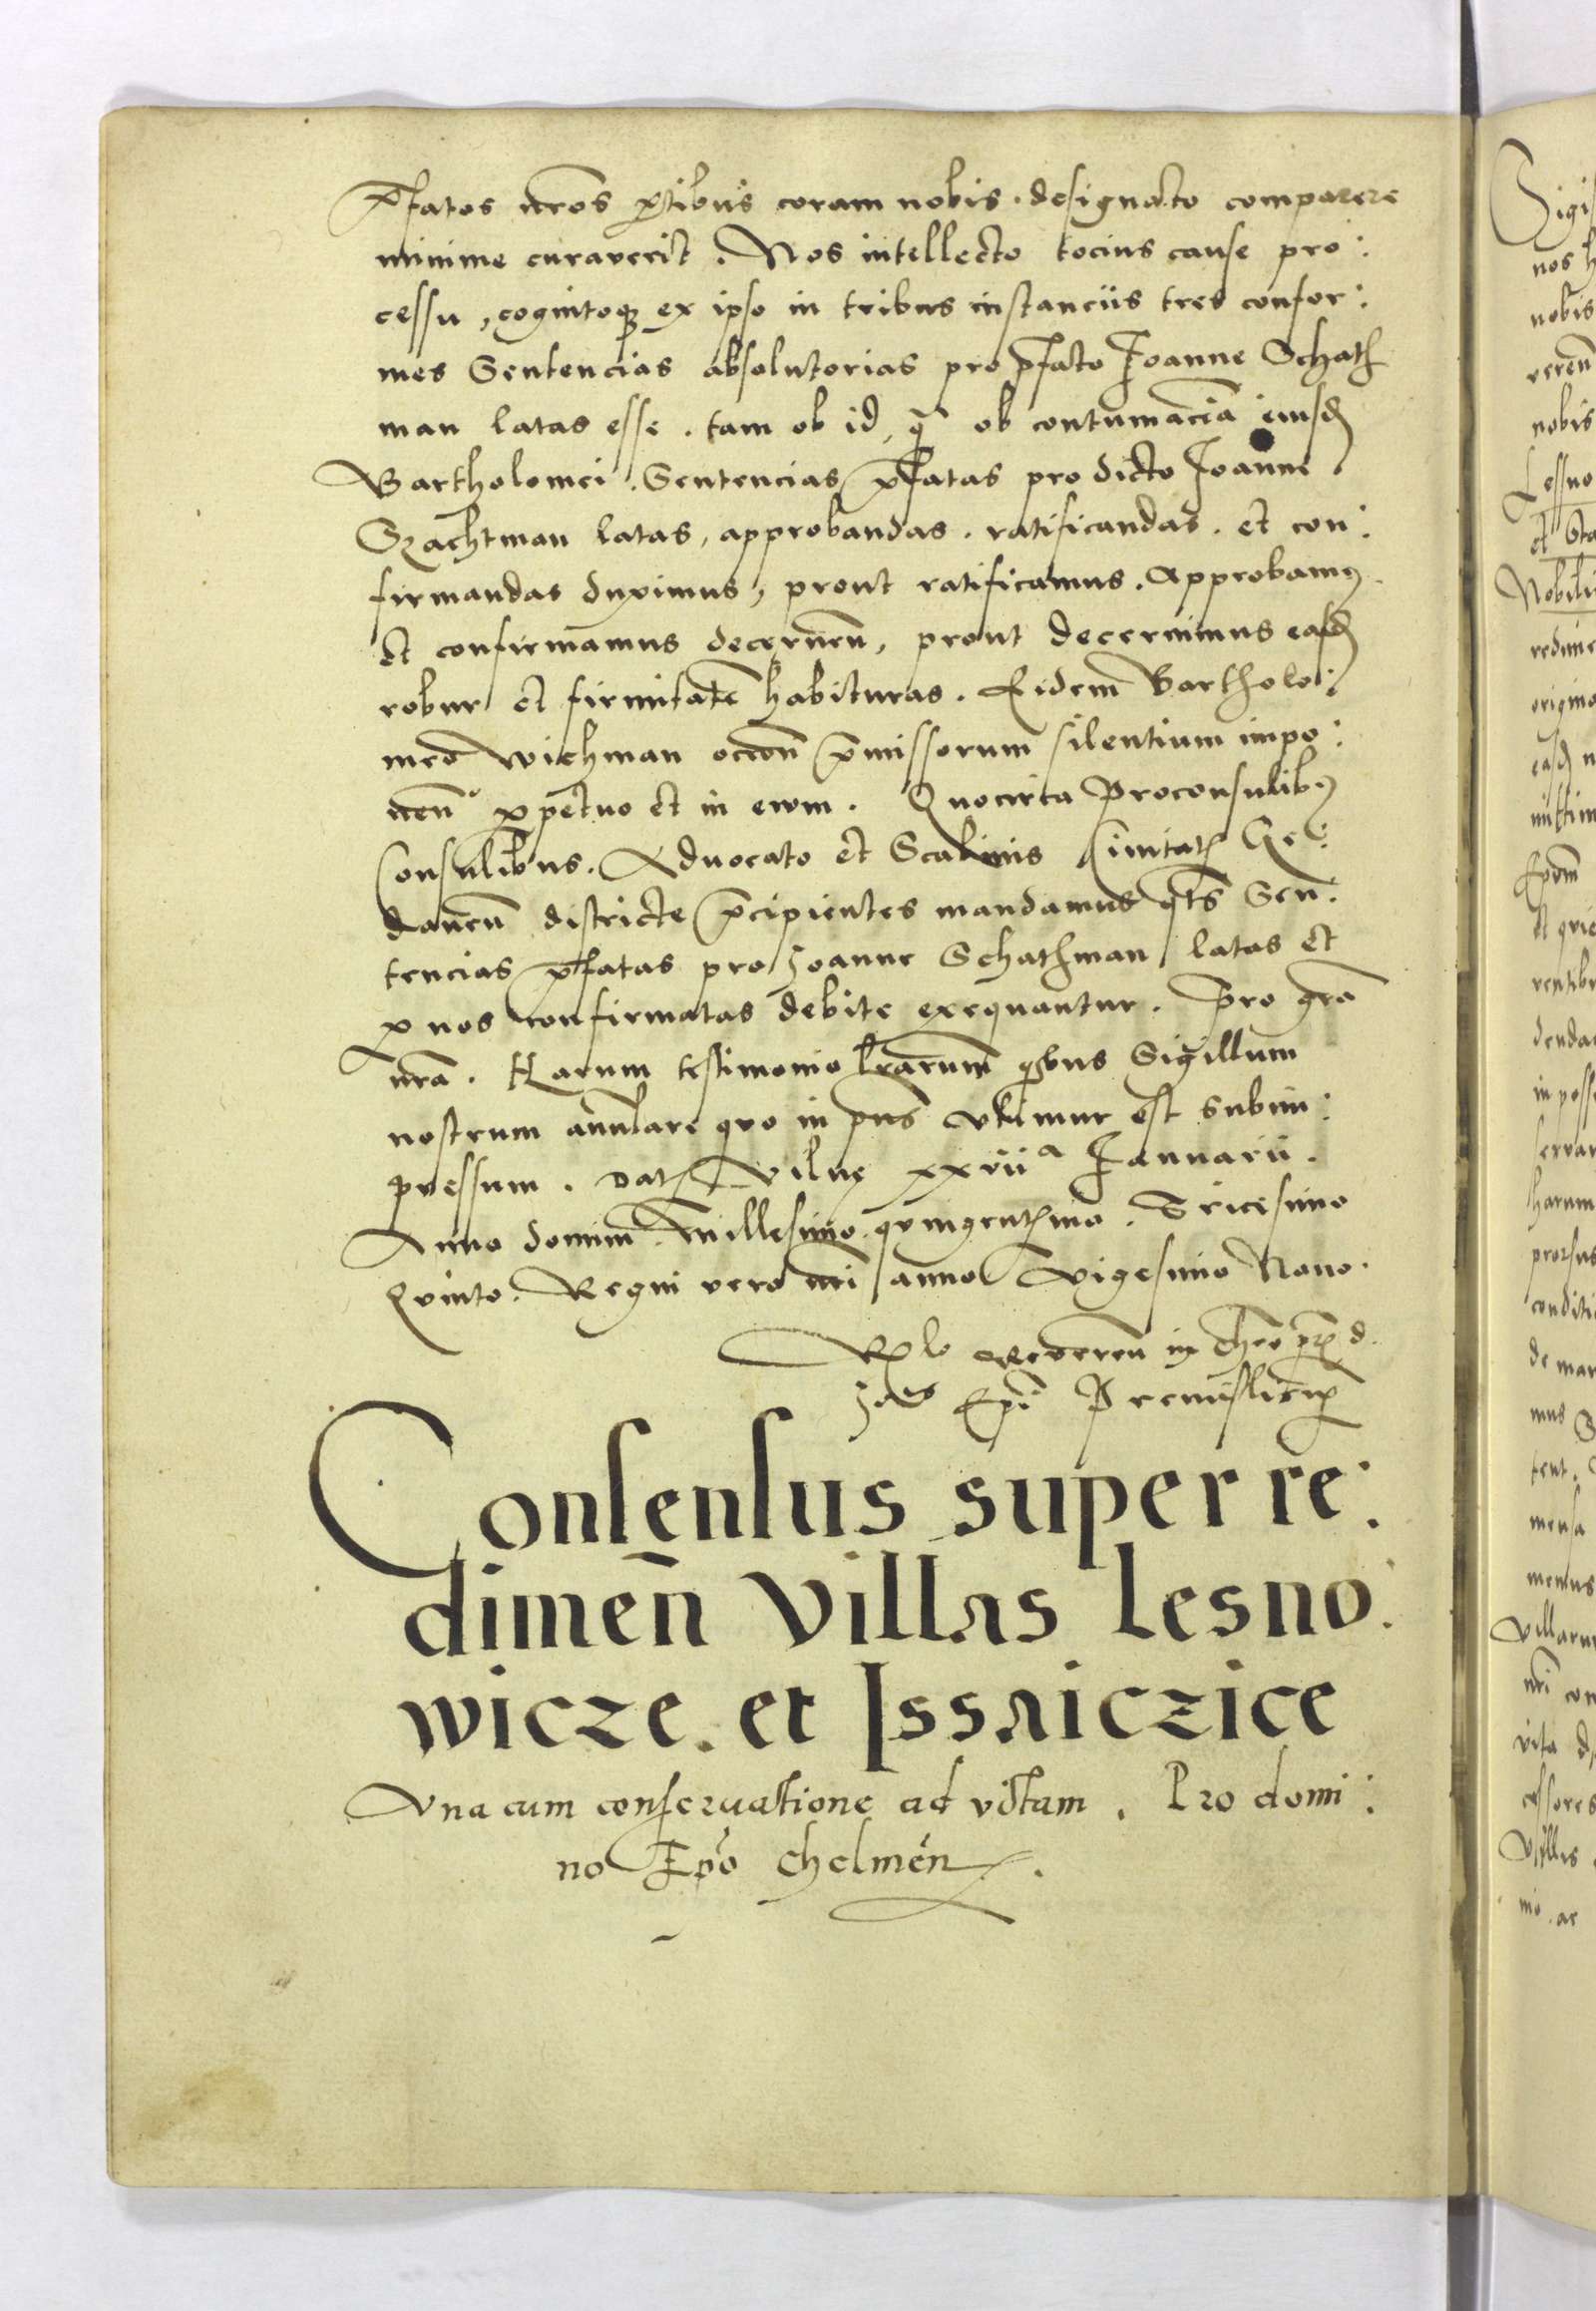 p̄fatos nr̄os p̱tibus coram nobis . designato comparere
minime curaverit . Nos intellecto tocius cause pro :
cessu , cognitoqꝫ ex ipso in tribus instanciis tres confor :
mes Sentencias absolutorias pro p̄fato Joanne Schath
man latas esse . tam ob id , q̄ ob contumaciā eiusd
Bartholomei . Sentencias p̄fatas pro dicto Joanne
Szachtman latas , approbandas . ratificandas . et con :
firmandas duximus , prout ratificamus . Approbamꝰ .
et confirmamus decernen̄ , prout decernimus easd
robur et firmitatē habituras . Eidem Bartholo :
meo Wichman occōn p̄missorum silentium impo :
nen̄ ꝑpetuo et in ewm . Quocirca Proconsulibꝰ
Consulibus . Advocato et Scabinis Civitatꝭ Ge :
danen̄ districte p̄cipientes mandamus qt̄s Sen :
tencias p̄fatas pro Joanne Schathman latas et
ꝑ nos confirmatas debite exequantur . Pro grā
nrā . Harum testimonio lrārum q̇bus Sigillum
nostrum annulare quo in pn̄s utimur est subim :
pressum . Datꝭ Vilnę xxvii ᵃ Januarii .
Anno domini Millesimo . quingentꝭmo . Tricesimo
Quinto . Regni vero nr̄i anno Vigesimo Nono .
Rlo Reveren̄ in chr̄o pr̄ꝭ d .
Joīs Ep̄i Premislien̄
Consensus super re :
dimen̄ villas Lesno :
wicze . et Issaiczice
Una cum conservatione ad vitam . Pro domi :
no Ep̄o Chelmen̄ .
Sigis
nos h
nobis
veren̄
nobis
Lessno
et Sta
Nobili
redime
origina
easd n
mittim
et qui
ventib
dendas
in poss
servan
harum
prorsus
conditi
de man
mus S
tent .
mensa
menus
Villarum
nr̄i con
vita d
cessores
Villis
mo . ac